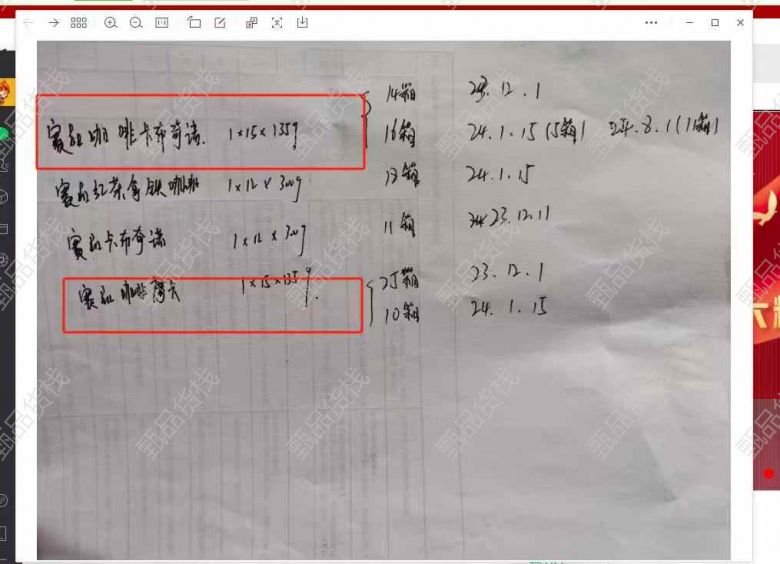 14箱 23.12.1
赛品咖啡卡布奇诺. 1×15×135g 16箱 24.1.15(5箱) 24.8.1(11箱)
赛品红茶拿铁咖啡 1×12×300g 13箱 24.1.15
赛品卡布奇诺 1×12×300g 11箱 23.12.11
赛品咖啡摩卡 1×15×135g. 25箱 23.12.1
10箱 24.1.15
甄品货栈